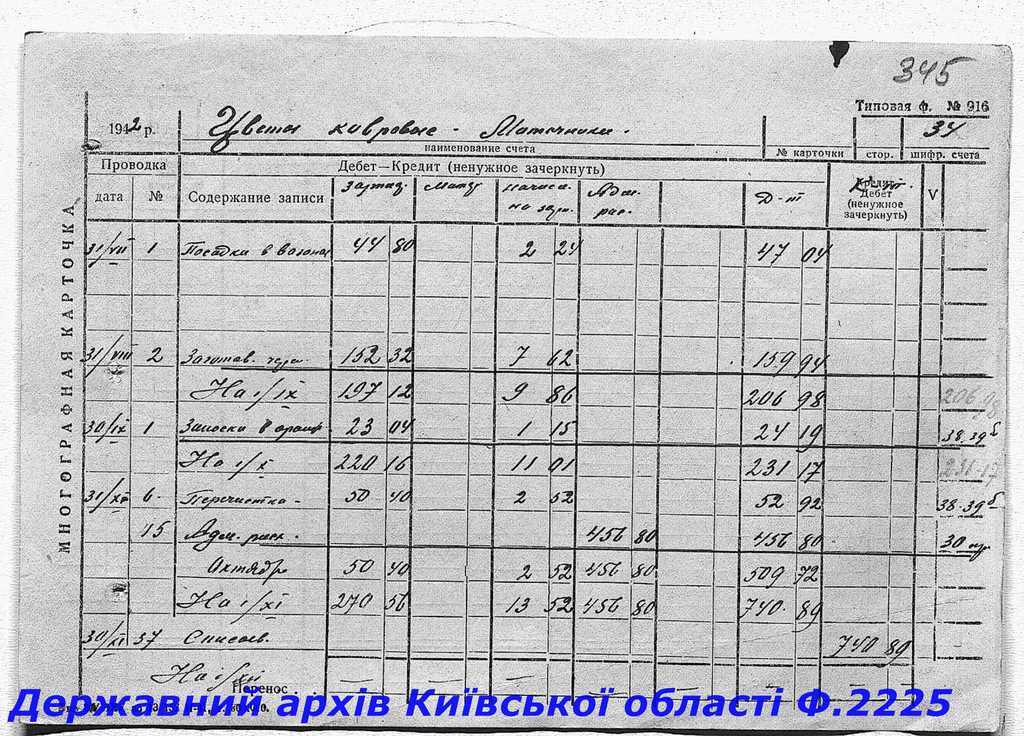 345
Типовая ф. № 916
1942 р. Цветы ковровые - Маточники. 34
наименование счета № карточки стор. шифр. счета
Проводка Дебет—Кредит (ненужное зачеркнуть)
дата № Содержание записи зарпл. начисл. на зарп. Адм. рас. Д-т Кредит Дебет (ненужное зачеркнуть) V
МНОГОГРАФНАЯ КАРТОЧКА
31/VII 1 Посадка в вазоны 44 80 2 24 47 04
31/VIII 2 Заготов. 152 32 7 62 159 94
На 1/IX 197 12 9 86 206 98 206 98
30/IX 1 23 04 1 15 24 19 38.39б
На 1/X 220 16 11 01 231 17 231-17
31/X 6 Перечистка - 50 40 2 52 52 92 38.39б
15 Адм. расх. 456 80 456 80 30
Октябр 50 40 2 52 456 80 509 72
На 1/XI 270 56 13 52 456 80 740 89
30/XI 37 Списов. 740 89
На 1/XII
Перенос . .
Державний архів Київської області Ф.2225